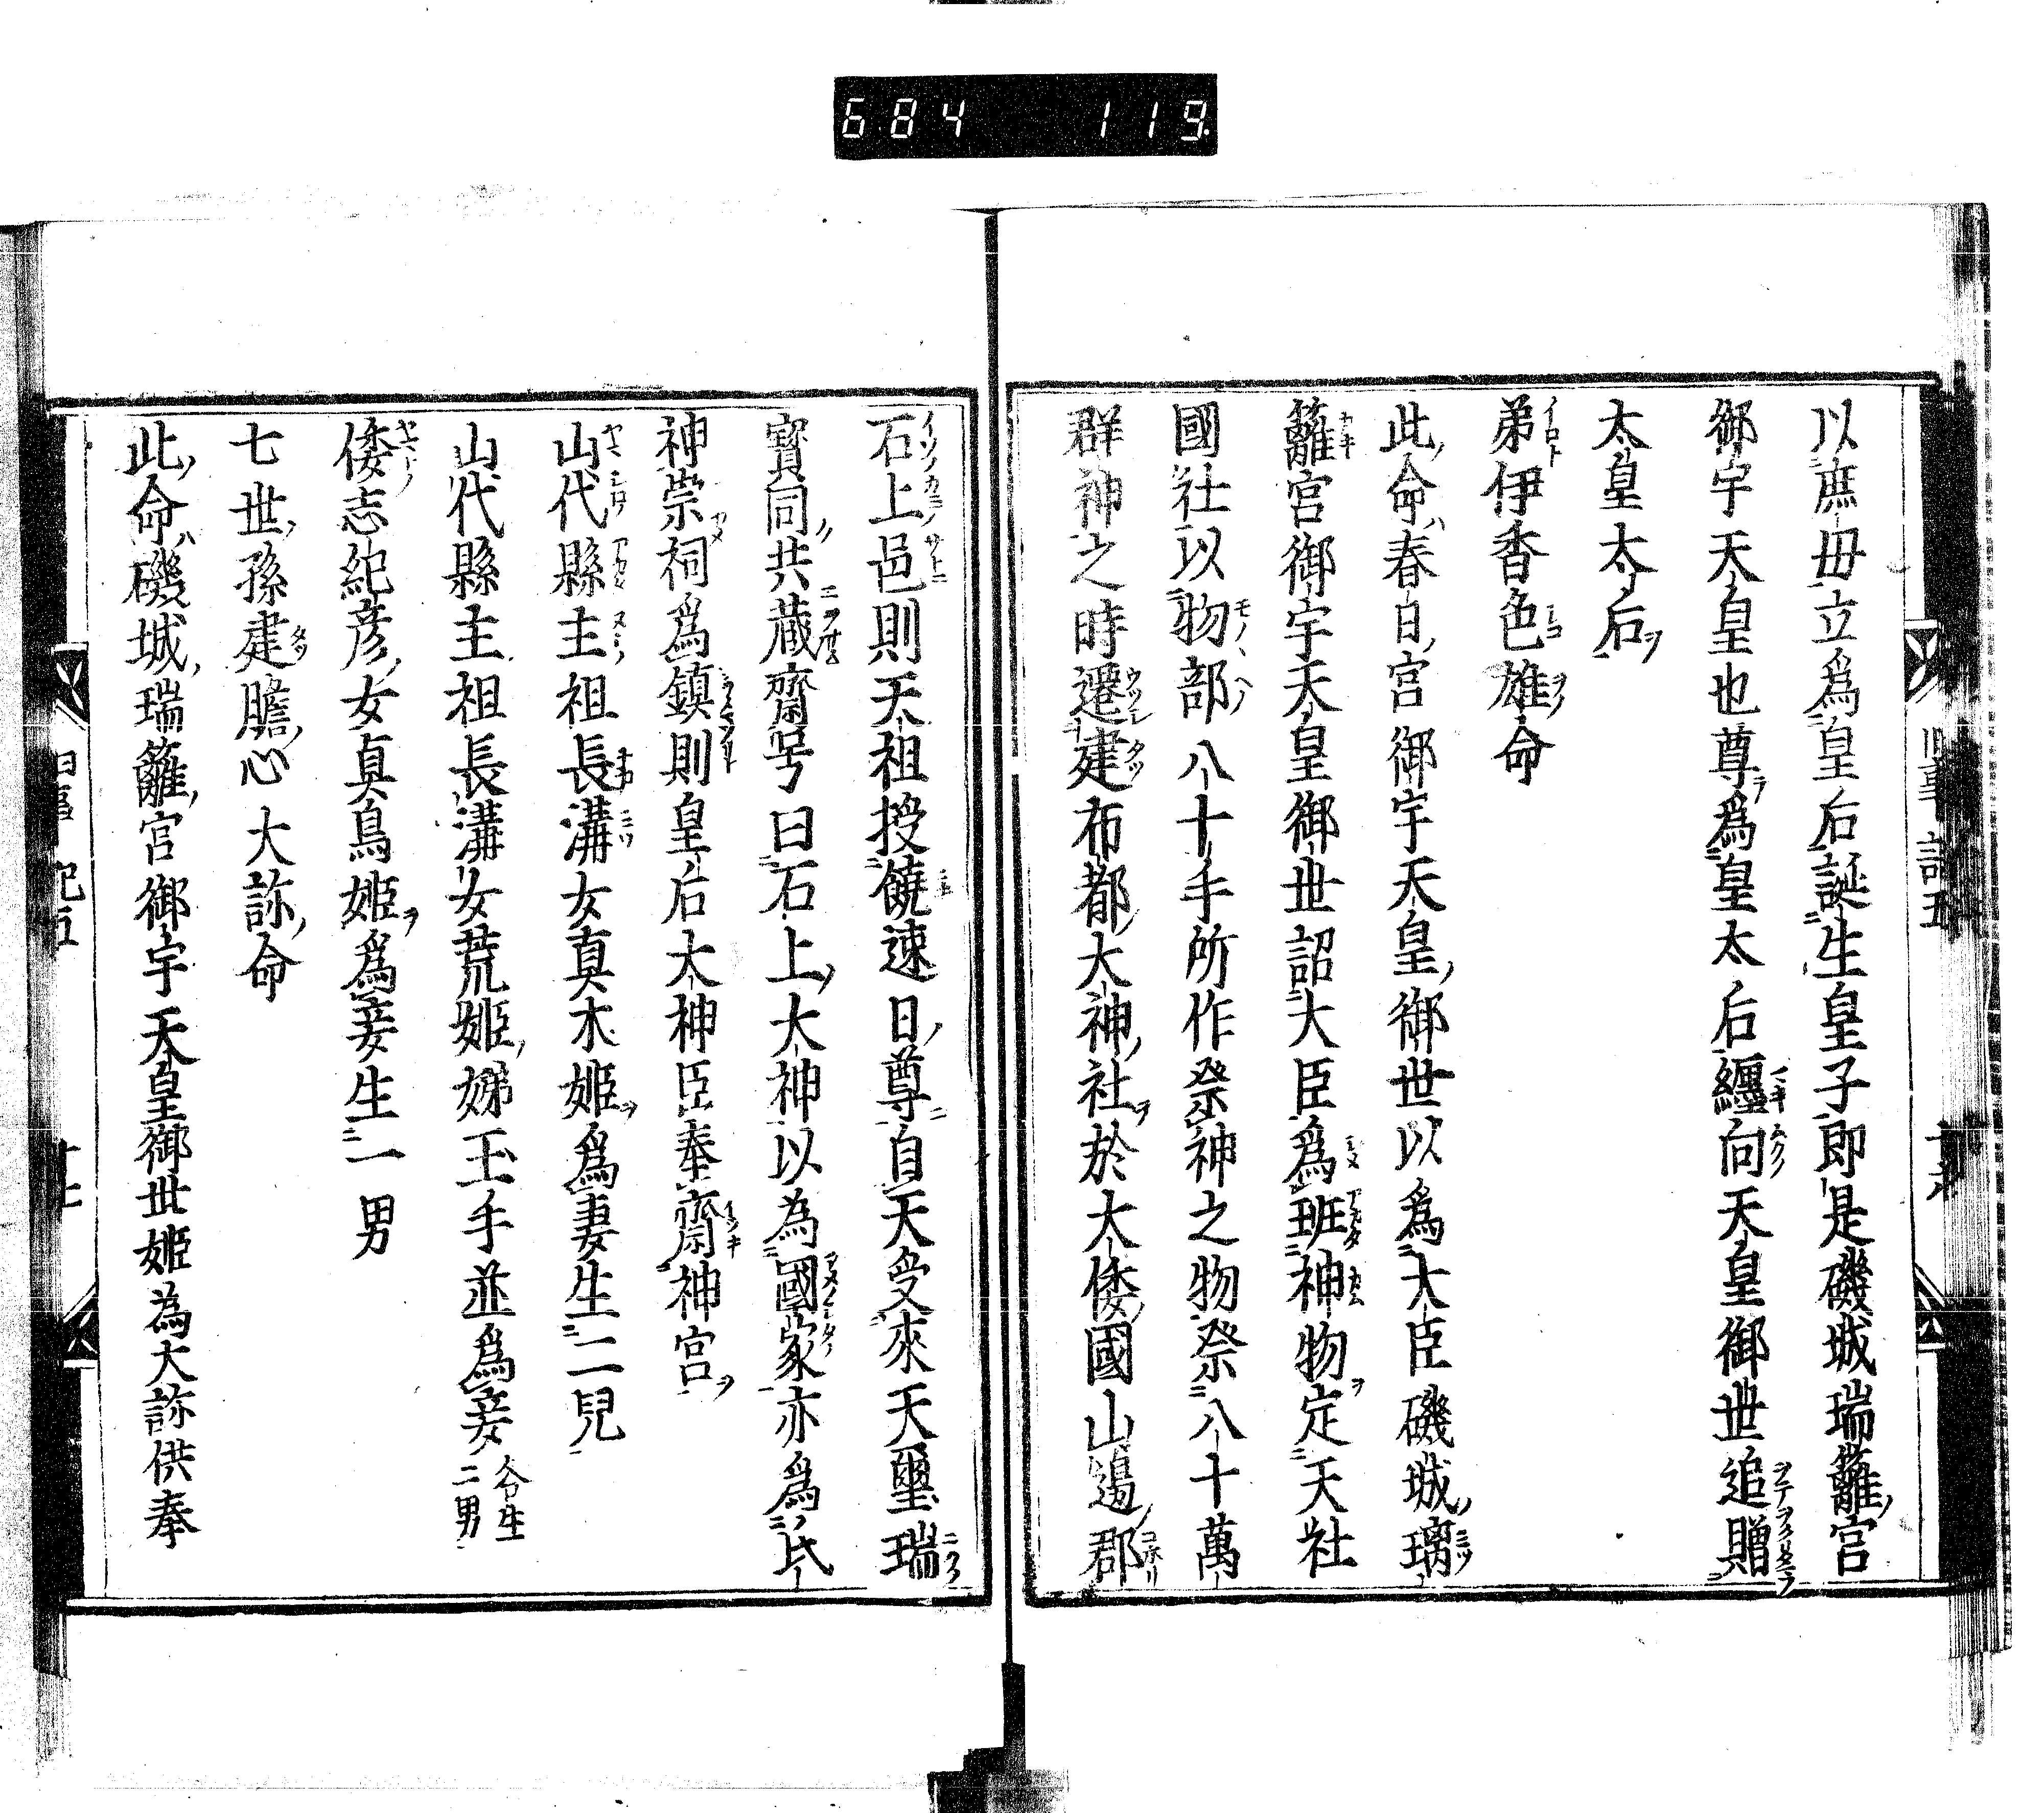 684 119
以庶毋立爲皇后誕生皇子即是磯城瑞籬宮
御宇天皇也尊爲皇太后纏向天皇御世追贈
太皇太后
弟伊香色雄命
此命春日宮御宇天皇御世以爲大臣磯城璃
籬宮御宇天皇御世詔大臣爲班神物定天社
國社以物部八十手所作祭神之物祭八十萬
群神之時遷建布都大神社於大倭國山邊郡
石上邑則天祖授饒速日尊自天受來天璽瑞
寳同共蔵齋号曰石上大神以為國家亦爲氏
神崇祠爲鎮則皇后大神臣奉齋神宮
山代縣主祖長溝女真木姫爲妻生二兒
山代縣主祖長溝女荒姫娣玉手並爲妾 各生二男
倭志紀彦女真鳥姫爲妾生一男
七世孫建膽心大祢命
此命磯城瑞籬宮御宇天皇御世始為大祢供奉